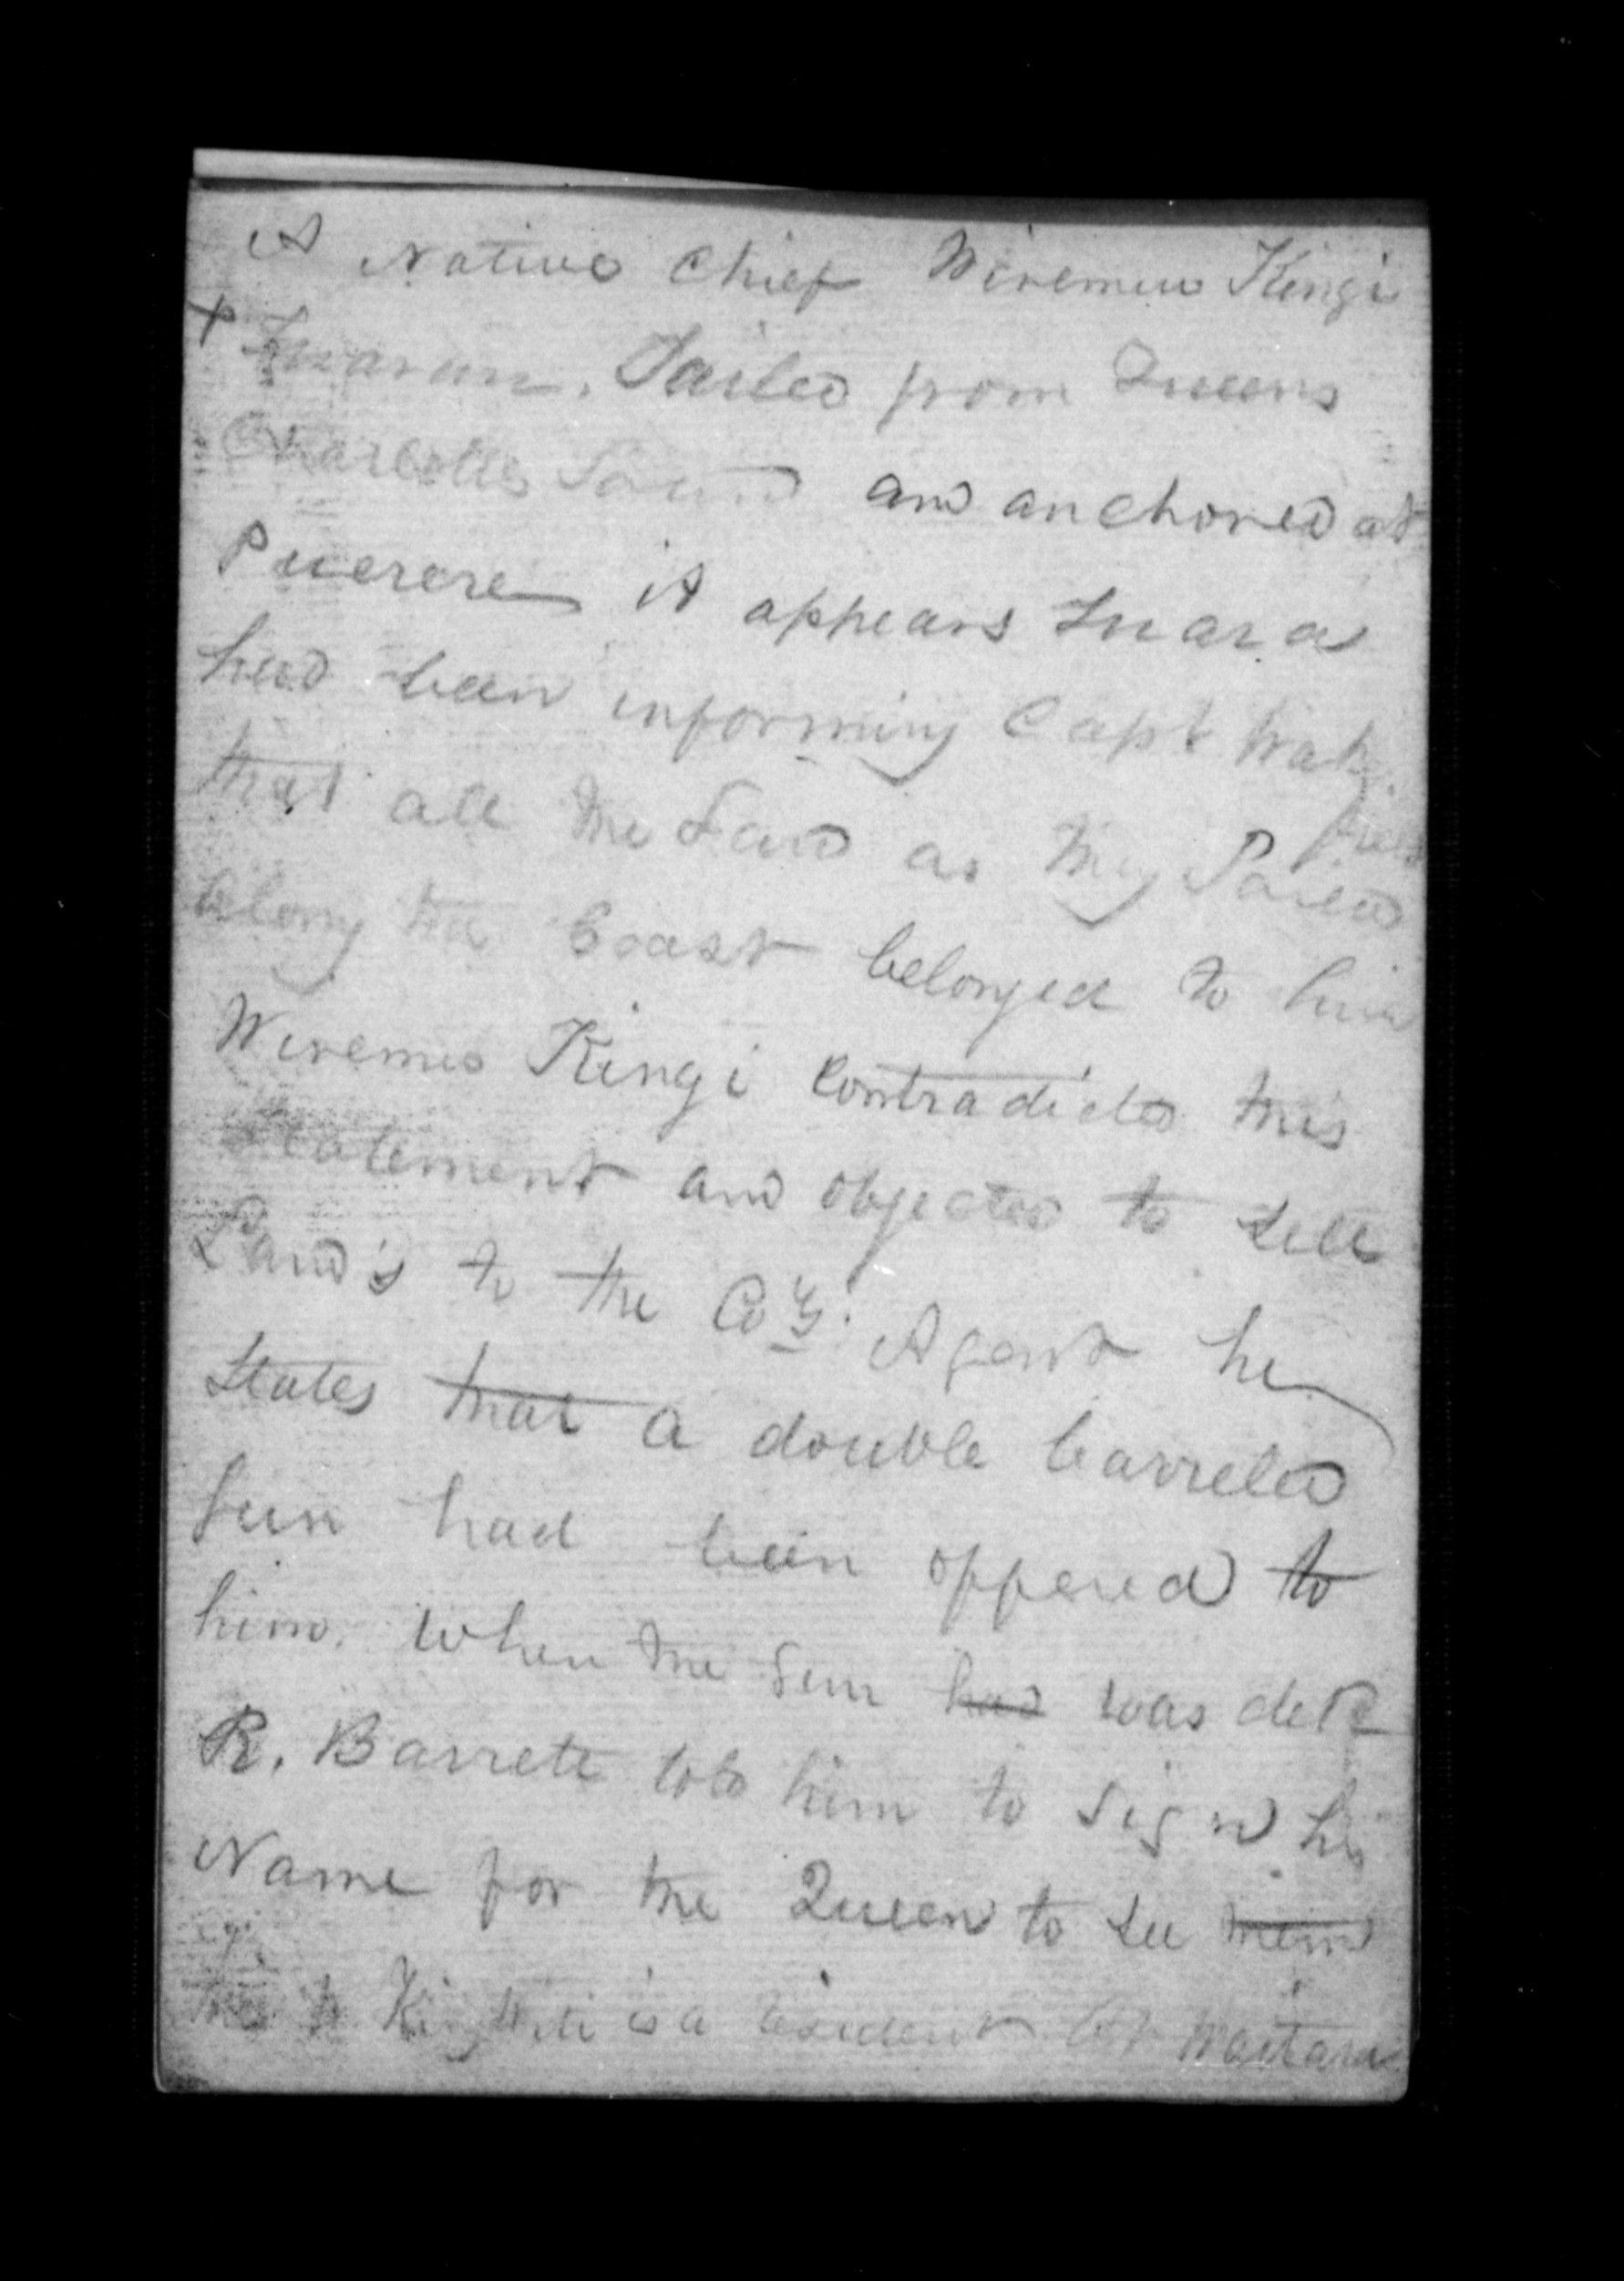 A Native Chief Wiremu Kingi
+ Tuarau. Sailed from Queens
Charlottes Sound and anchored at
Puerere it appears Tuara
had been informing Capt Wake
field
that all the Land as they Sailed
along the Coast belonged to him
Wiremu Kingi Contradicted this
Statement and objected to sell
Land's to the Coy. Agent he
States that a double barreled
Gun had been offered to
him. When the Gun had was deld
R. Barrett told him to sign his
Name for the Queen to see them
Kingi is a resident at Waitara